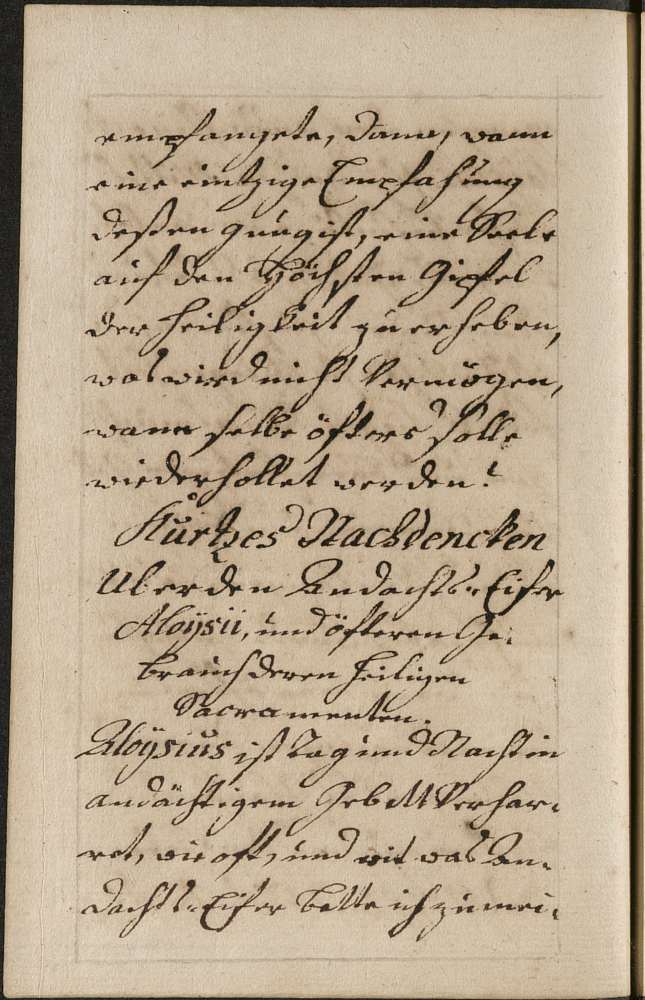 empfangete, dann, wann
eine eintzige Empfahung
deßen gnug ist, eine Seele
auf den Höchsten Gipfel
der heiligkeit zu erheben,
was wird nicht Vermögen,
wann selbe öfters solle
wiederhollet werden?
Kurtzes Nachdencken
Uber den Andachts-Eifer
Aloÿsii, und öfteren Ge-
brauch deren heiligen
Sacramenten.
Aloÿsius ist Tag und Nacht in
andächtigem Gebett Verhar-
ret, wie oft, und mit was An-
dachts-Eifer bette ich zu mei-